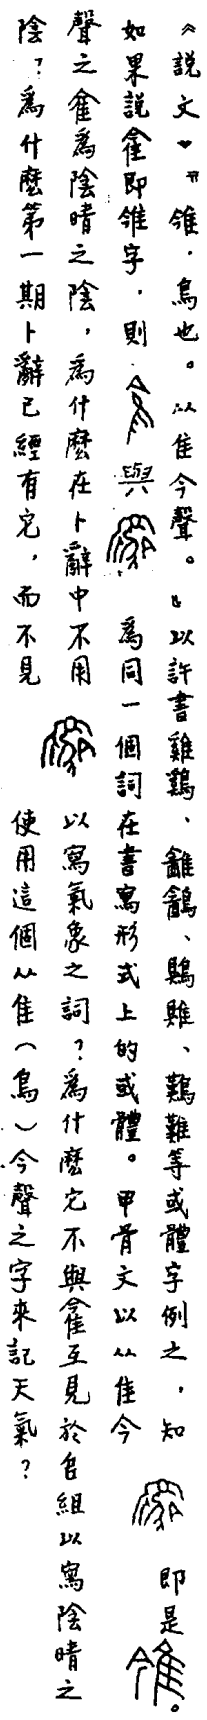 《説文》：「雂，鳥也。从隹今聲。」以許書雞鷄、雝鷛、鵙雎、鷬難等或體字例之，知 即是雂。
如果説隺即雂字，則 與 爲同一個詞在書寫形式上的或體。甲骨文以从隹今
聲之隺爲陰晴之陰，爲什麽在卜辭中不用 以寫氣象之詞？爲什麽它不與隺互見於𠂤組以寫陰晴之
陰？爲什麽第一期卜辭已經有它，而不見 使用這個从隹（鳥）今聲之字來記天氣？